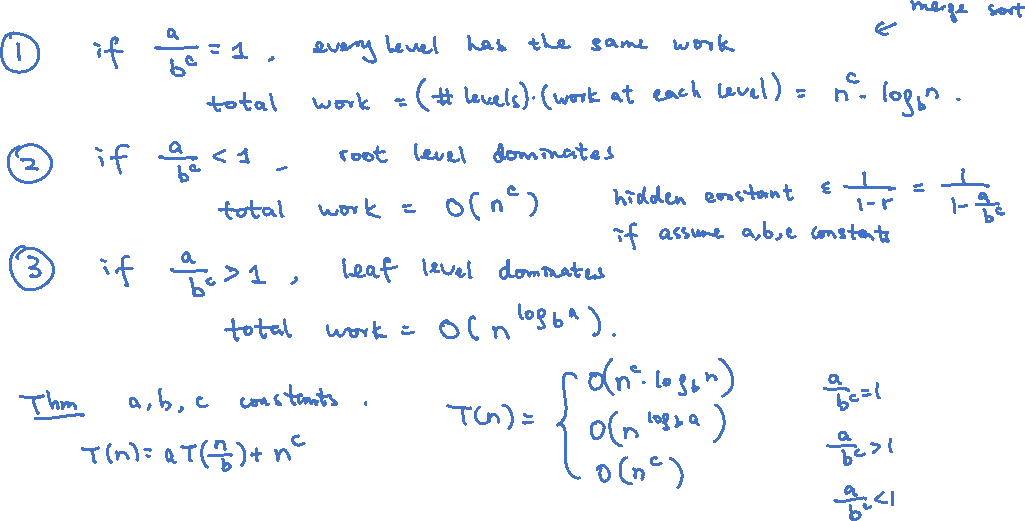 ← merge sort
① if a/b^c = 1, every level has the same work
total work = (# levels)·(work at each level) = n^c · log_b n.
② if a/b^c < 1, root level dominates
total work = O(n^c)
hidden constant ≤ 1/(1-r) = 1/(1-a/b^c)
if assume a,b,c constants
③ if a/b^c > 1, leaf level dominates
total work = O(n^(log_b a)).
Thm a, b, c constants.
T(n) = a T(n/b) + n^c
T(n) = {
O(n^c · log_b n) a/b^c = 1
O(n^(log_b a)) a/b^c > 1
O(n^c) a/b^c < 1